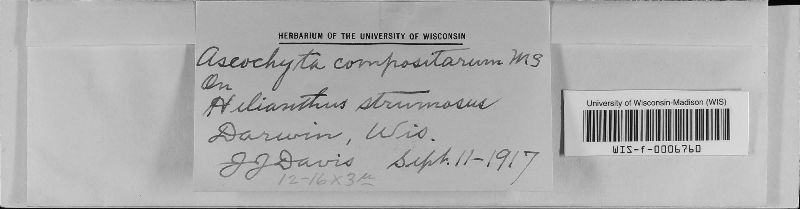 HERBARIUM OF THE UNIVERSITY OF WISCONSIN
Ascochyta compositarum MS
On
Helianthus strumosus
Darwin, Wis.
J J Davis Sept. 11-1917
12-16 x 3 µ
University of Wisconsin-Madison (WIS)
WIS-f-0006760